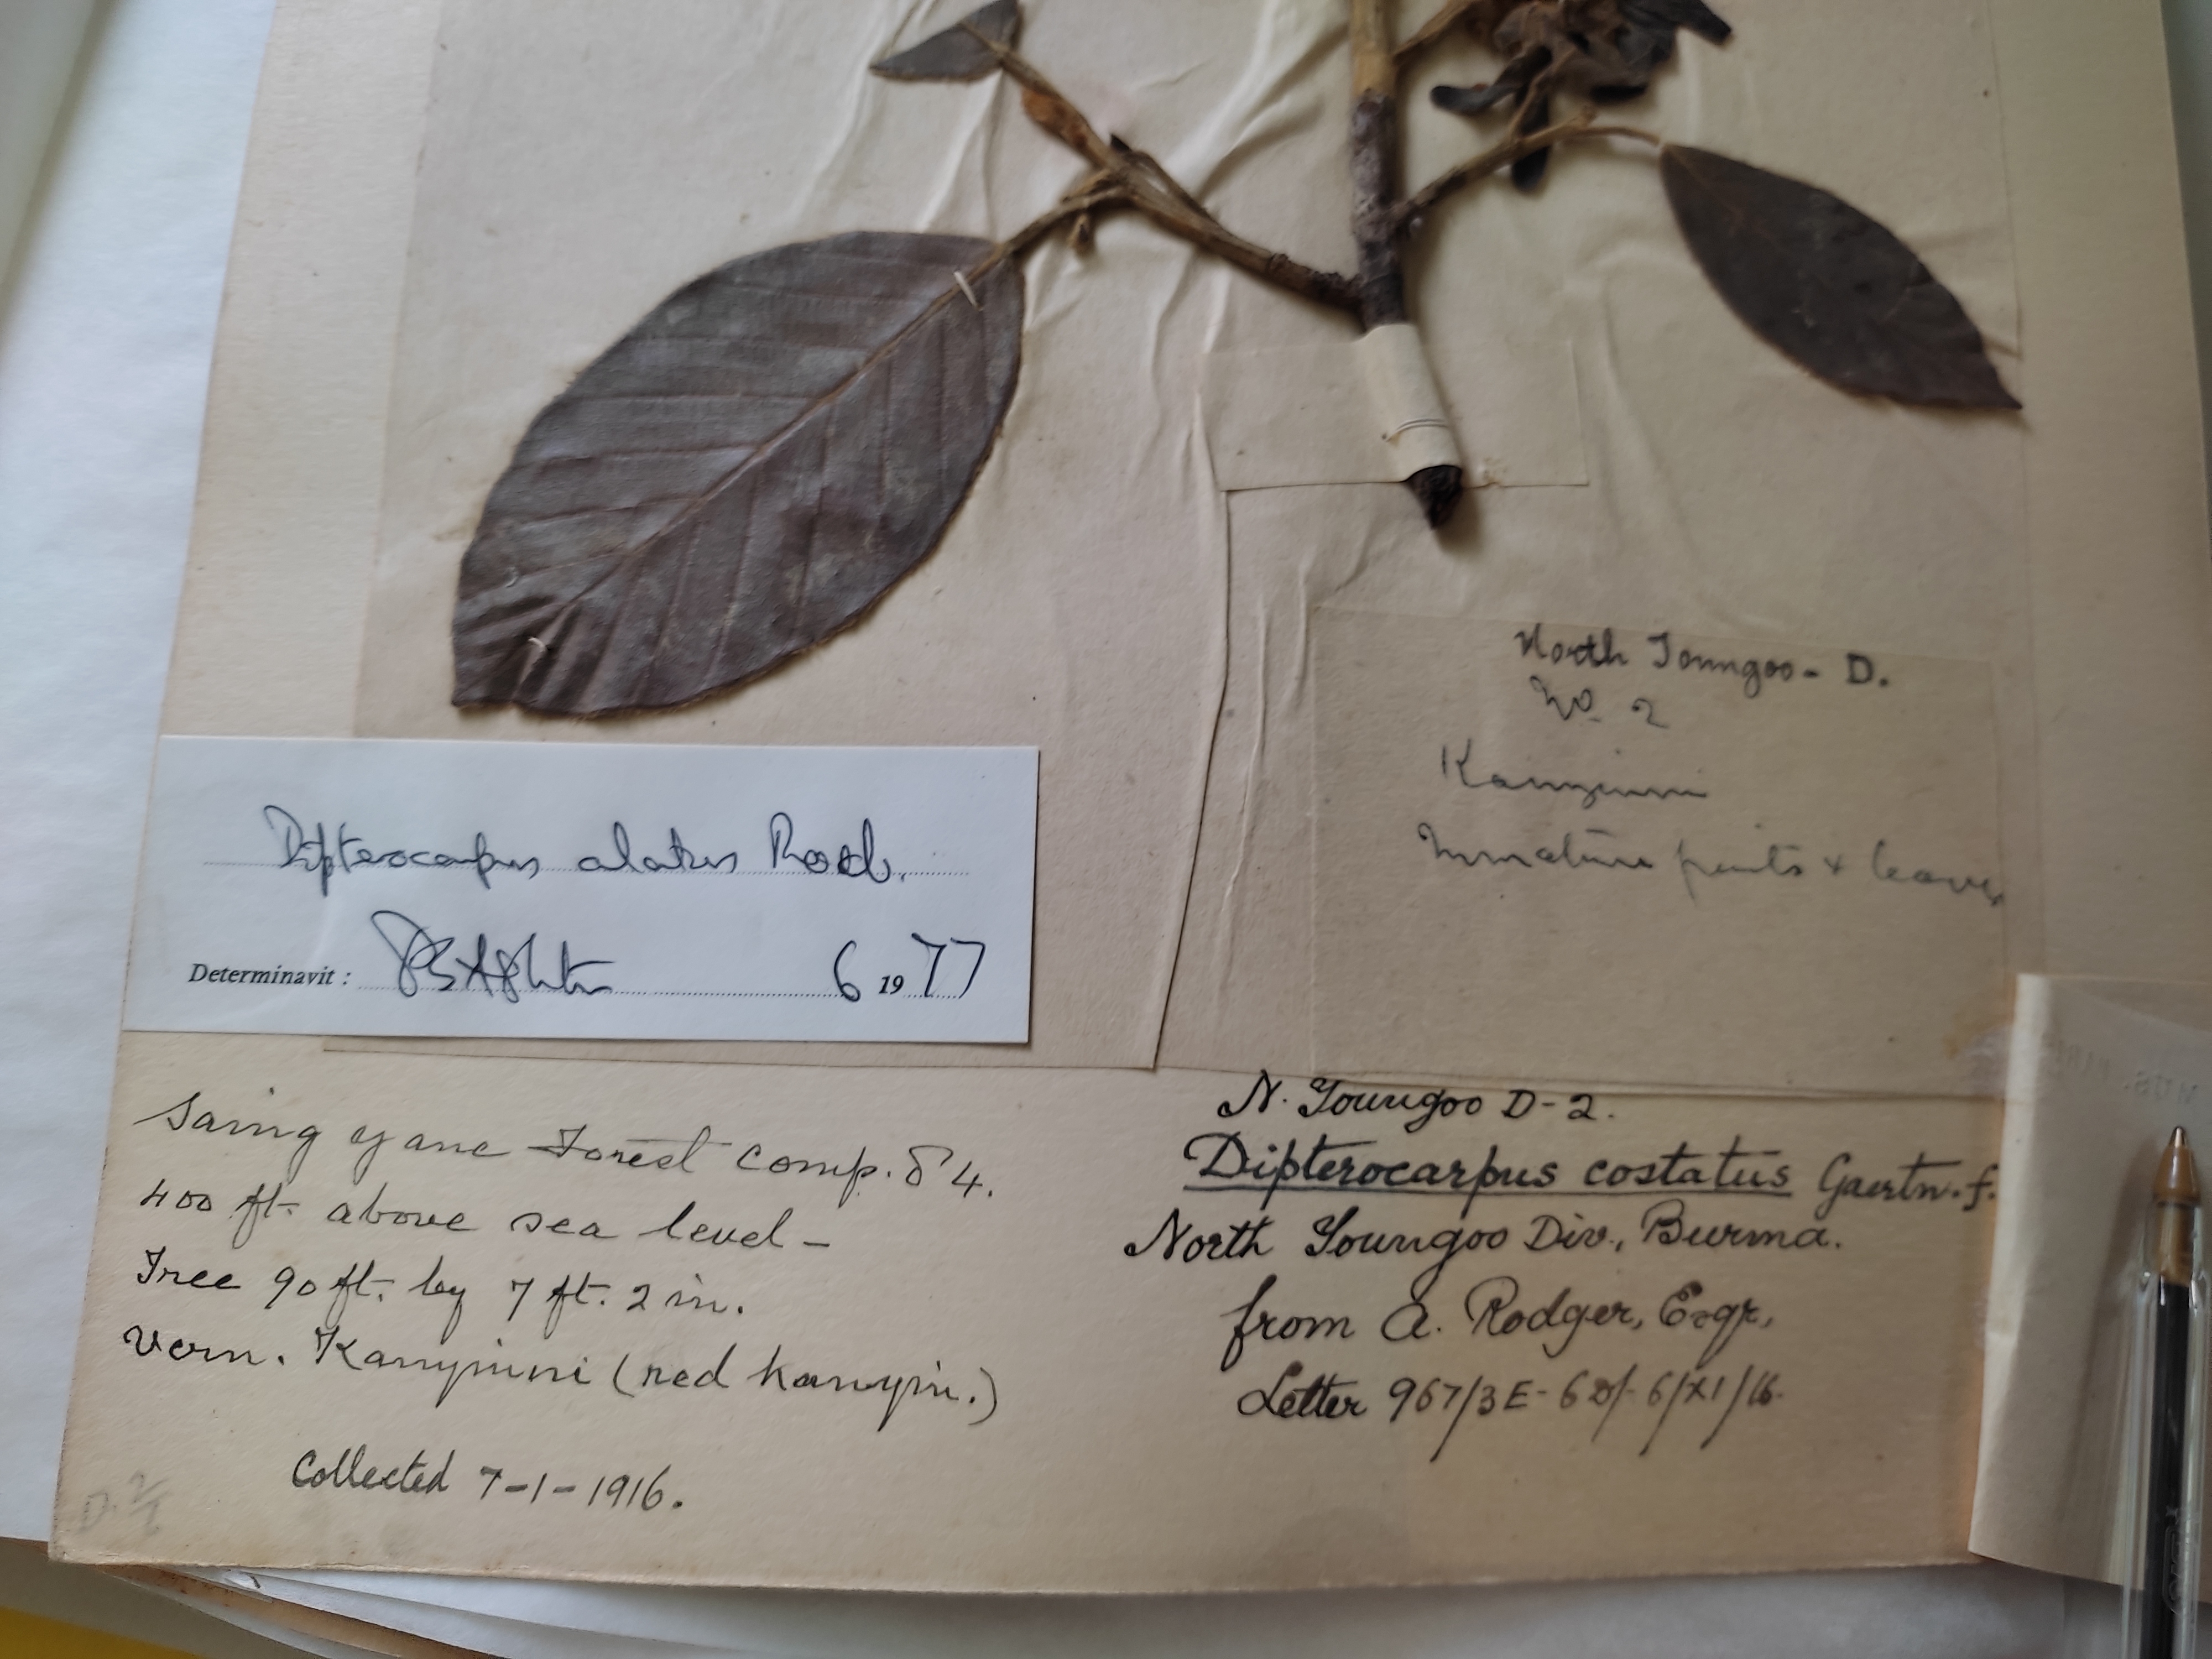 North Toungoo - D.
No. 2
Kanyinni
Immature fruits & leaves
Dipterocarpus alatus Roxb.
Determinavit : PSAshton 6 1977
Saing yane Forest Comp. 84.
400 ft. above sea level -
Tree 90 ft. by 7 ft. 2 in.
Vern. Kanyinni (red kanyin.)
Collected 7-1-1916.
N. Toungoo D-2.
Dipterocarpus costatus Gaertn. f.
North Toungoo Div., Burma.
from A. Rodger, Esqr.,
Letter 967/3E-6 D/- 6/XI/16.